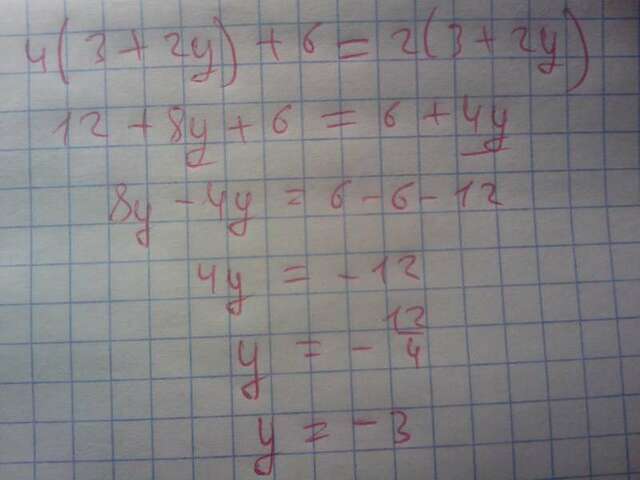 4(3+2y)+6=2(3+2y)
12+8y+6=6+4y
8y-4y=6-6-12
4y=-12
y=-12/4
y=-3